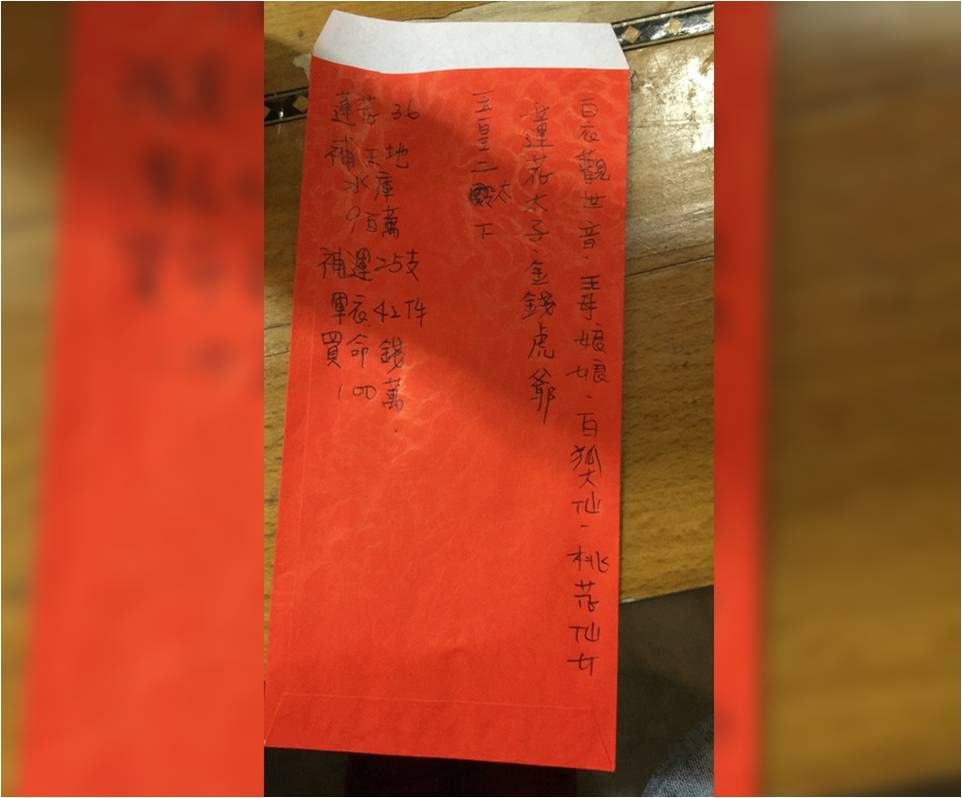 白衣觀世音.王母娘娘.白狐大仙-桃花仙女
蓮花太子.金錢虎爺
玉皇二太下
蓮花 36
補天地
水庫
9百萬
補運 25支
軍衣 42件
買命錢
100萬.